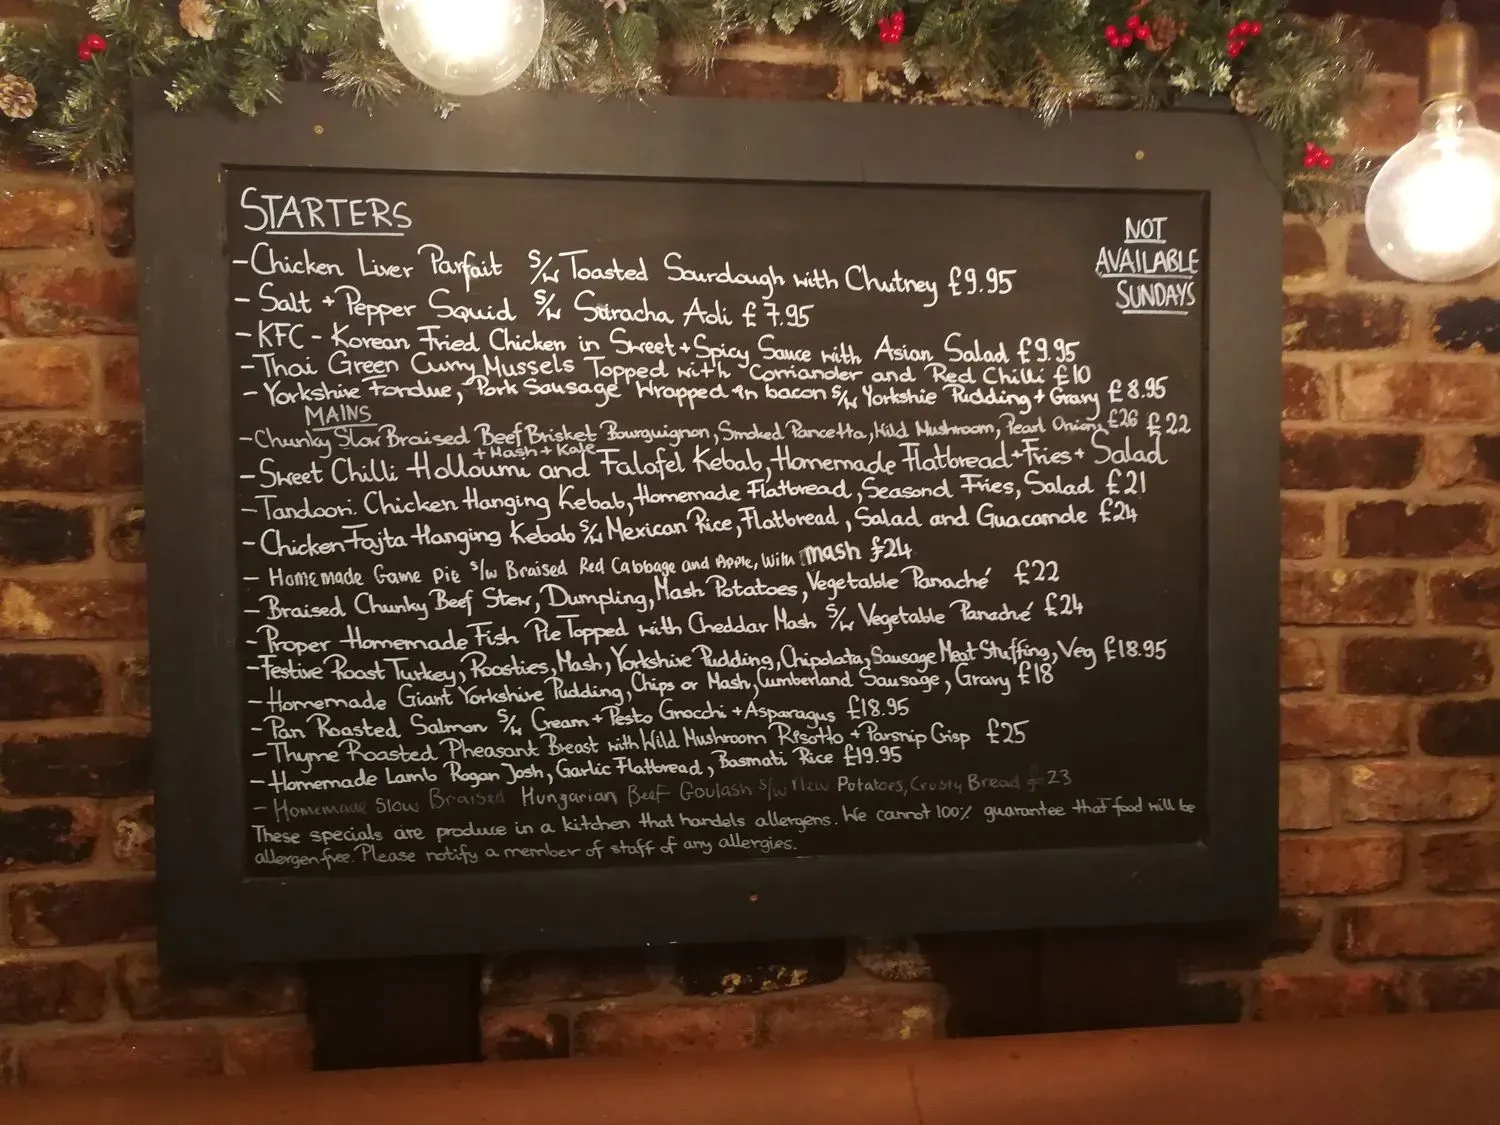 STARTERS
NOT
AVAILABLE
SUNDAYS
- Chicken Liver Parfait S/w Toasted Sourdough with Chutney £9.95
- Salt + Pepper Squid S/w Sriracha Aoli £7.95
- KFC - Korean Fried Chicken in Sweet + Spicy Sauce with Asian Salad £9.95
- Thai Green Curry Mussels Topped with Corriander and Red Chilli £10
- Yorkshire Fondue, Pork Sausage Wrapped in bacon S/w Yorkshie Pudding + Gravy £8.95
MAINS
- Chunky Slow Braised Beef Brisket Bourguignon, Smoked Pancetta, Wild Mushroom, Pearl Onion, £26
+ Mash + Kale
- Sweet Chilli Halloumi and Falafel Kebab, Homemade Flatbread + Fries + Salad £22
- Tandoori Chicken Hanging Kebab, Homemade Flatbread, Seasond Fries, Salad £21
- Chicken Fajta Hanging Kebab S/w Mexican Rice, Flatbread, Salad and Guacamole £24
- Homemade Game Pie S/w Braised Red Cabbage and Apple, With mash £24
- Braised Chunky Beef Stew, Dumpling, Mash Potatoes, Vegetable Panaché £22
- Proper Homemade Fish Pie Topped with Cheddar Mash S/w Vegetable Panaché £24
- Festive Roast Turkey, Roasties, Mash, Yorkshire Pudding, Chipolata, Sausage Meat Stuffing, Veg £18.95
- Homemade Giant Yorkshire Pudding, Chips or Mash, Cumberland Sausage, Gravy £18
- Pan Roasted Salmon S/w Cream + Pesto Gnocchi + Asparagus £18.95
- Thyme Roasted Pheasant Breast with Wild Mushroom Risotto + Parsnip Crisp £25
- Homemade Lamb Rogan Josh, Garlic Flatbread, Basmati Rice £19.95
- Homemade Slow Braised Hungarian Beef Goulash S/w New Potatoes, Crusty Bread £23
These specials are produce in a kitchen that handels allergens. We cannot 100% guarantee that food will be
allergen free. Please notify a member of staff of any allergies.